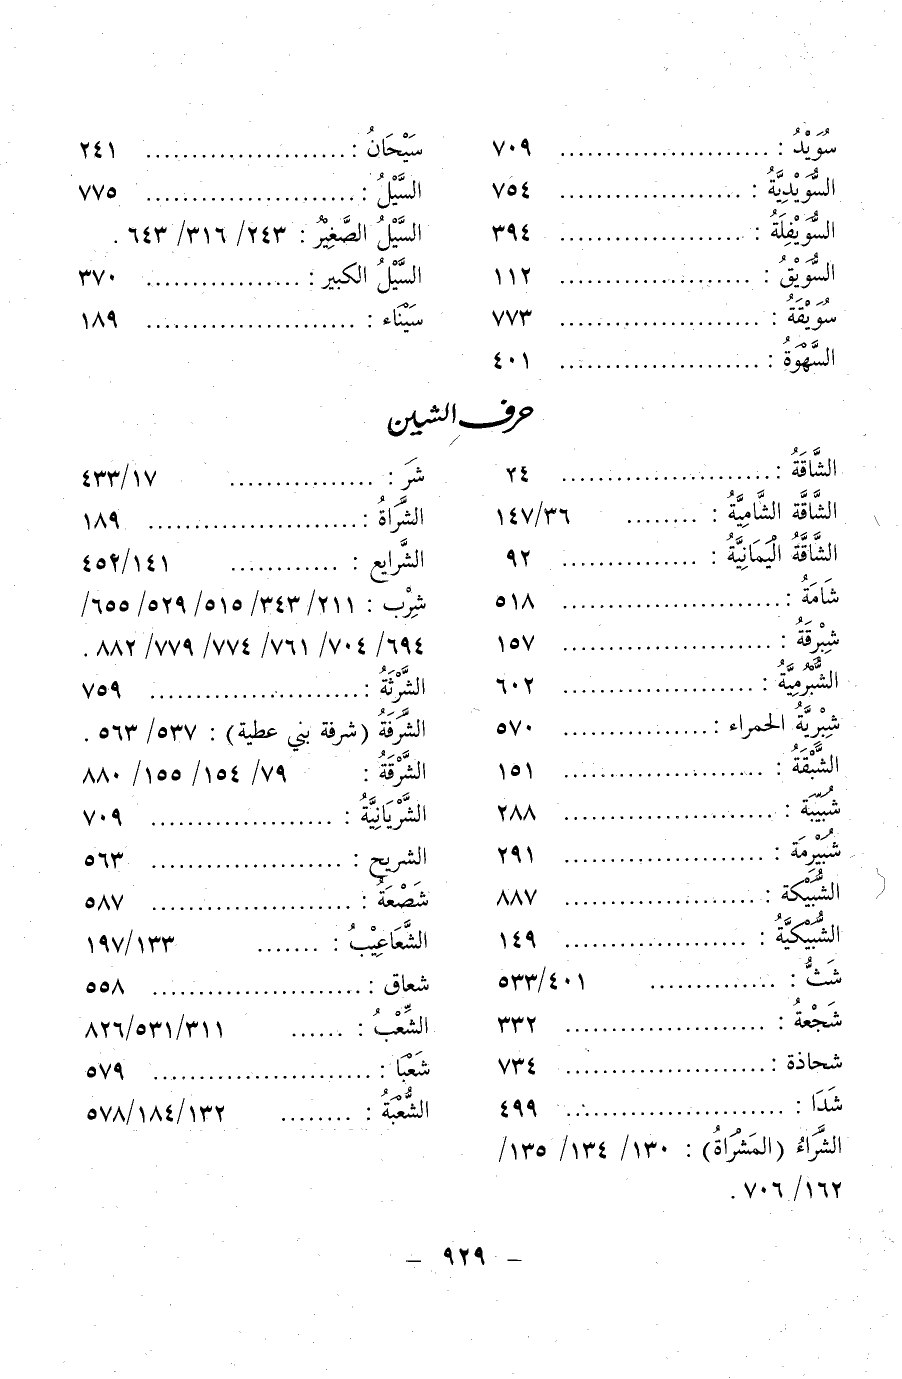 سُوَيْدُ : ....................... ٧٠٩
السُّوَيْدِيَّةُ : .................... ٧٥٤
السُّوَيْفِلَةُ : .................... ٣٩٤
السُّوَيْقُ : ..................... ١١٢
سُوَيْقَةُ : ...................... ٧٧٣
السَّهْوَةُ : ...................... ٤٠١
سَيْحَانُ : ...................... ٢٤١
السَّيْلُ : ....................... ٧٧٥
السَّيْلُ الصَّغِيْرُ : ٢٤٣/ ٣١٦/ ٦٤٣ .
السَّيْلُ الكبير : ................. ٣٧٠
سَيْنَاء : ....................... ١٨٩
حرف الشين
الشَّاقَةُ : ....................... ٢٤
الشَّاقَّة الشَّامِيَّةُ : ........ ١٤٧/٣٦
الشَّاقَّةُ الْيَمَانِيَّةُ : ............... ٩٢
شَامَةُ : ........................ ٥١٨
شِبْرِقَةُ : ....................... ١٥٧
الشُّبْرُمِيَّةُ : ..................... ٦٠٢
شِبْرِيَّةُ الحمراء : ................ ٥٧٠
الشَّبْقَةُ : ...................... ١٥١
شُبَيّبَة : ....................... ٢٨٨
شُبَيْرِمَة : ...................... ٢٩١
الشُّبَيْكة : ..................... ٨٨٧
الشُّبَيْكِيَّةُ : .................... ١٤٩
شَثُّ : .............. ٥٣٣/٤٠١
شَجْعَةُ : ...................... ٣٣٢
شحاذة : ...................... ٧٣٤
شَدَا : ........................ ٤٩٩
الشَّرَاءُ (المَشْرَاةُ) : ١٣٠/ ١٣٤/ ١٣٥/
١٦٢/ ٧٠٦ .
شَرَ : ................ ٤٣٣/١٧
الشَّرَاةُ : ....................... ١٨٩
الشَّرايع : ............ ٤٥٢/١٤١
شِرْب : ٢١١/ ٣٤٣/ ٥١٥/ ٥٢٩/ ٦٥٥/
٦٩٤/ ٧٠٤/ ٧٦١/ ٧٧٤/ ٧٧٩/ ٨٨٢ .
الشَّرْثَةُ : ....................... ٧٥٩
الشَّرَفَةُ (شرفة بني عطية) : ٥٣٧/ ٥٦٣ .
الشَّرْقَةُ : ٧٩/ ١٥٤/ ١٥٥/ ٨٨٠
الشَّرْيَانِيَّةُ : .................... ٧٠٩
الشريح : ..................... ٥٦٣
شَصْعَةُ : ...................... ٥٨٧
الشَّعَاعِيْبُ : ....... ١٩٧/١٣٣
شعاق : ....................... ٥٥٨
الشِّعْبُ : ...... ٨٢٦/٥٣١/٣١١
شَعْبَا : ........................ ٥٧٩
الشُّعْبَةُ : ........ ٥٧٨/١٨٤/١٣٢
– ٩٢٩ –